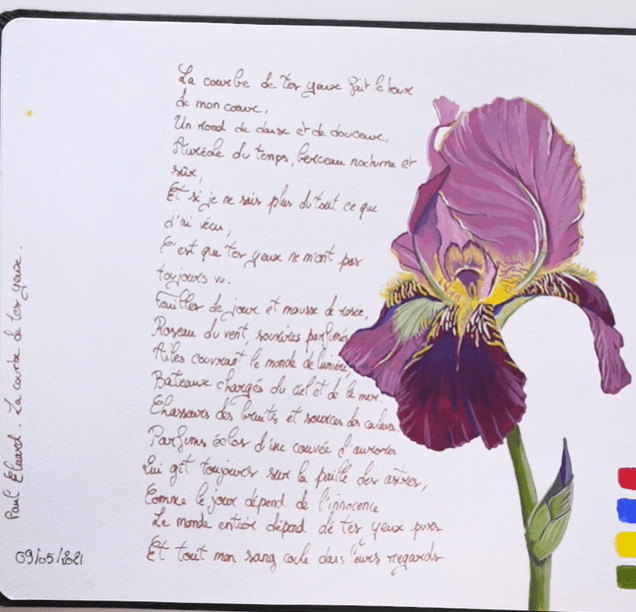 La courbe de tes yeux fait le tour
de mon coeur,
Un rond de danse et de douceur,
Auréole du temps, berceau nocturne et
sûr,
Et si je ne sais plus du tout ce que
j'ai vécu,
C'est que tes yeux ne m'ont pas
toujours vu.
Feuilles de jour et mousse de rosée,
Roseau du vent, sourires parfumés
Ailes couvrant le monde de lumière,
Bateaux chargés du ciel et de la mer.
Chasseurs des bruits et sources des couleurs
Parfums éclos d'une couvée d'aurores
Qui gît toujours sur la paille des astres,
Comme le jour dépend de l'innocence
Le monde entier dépend de tes yeux purs
Et tout mon sang coule dans leurs regards
Paul Eluard. La courbe de tes yeux.
09/05/2021